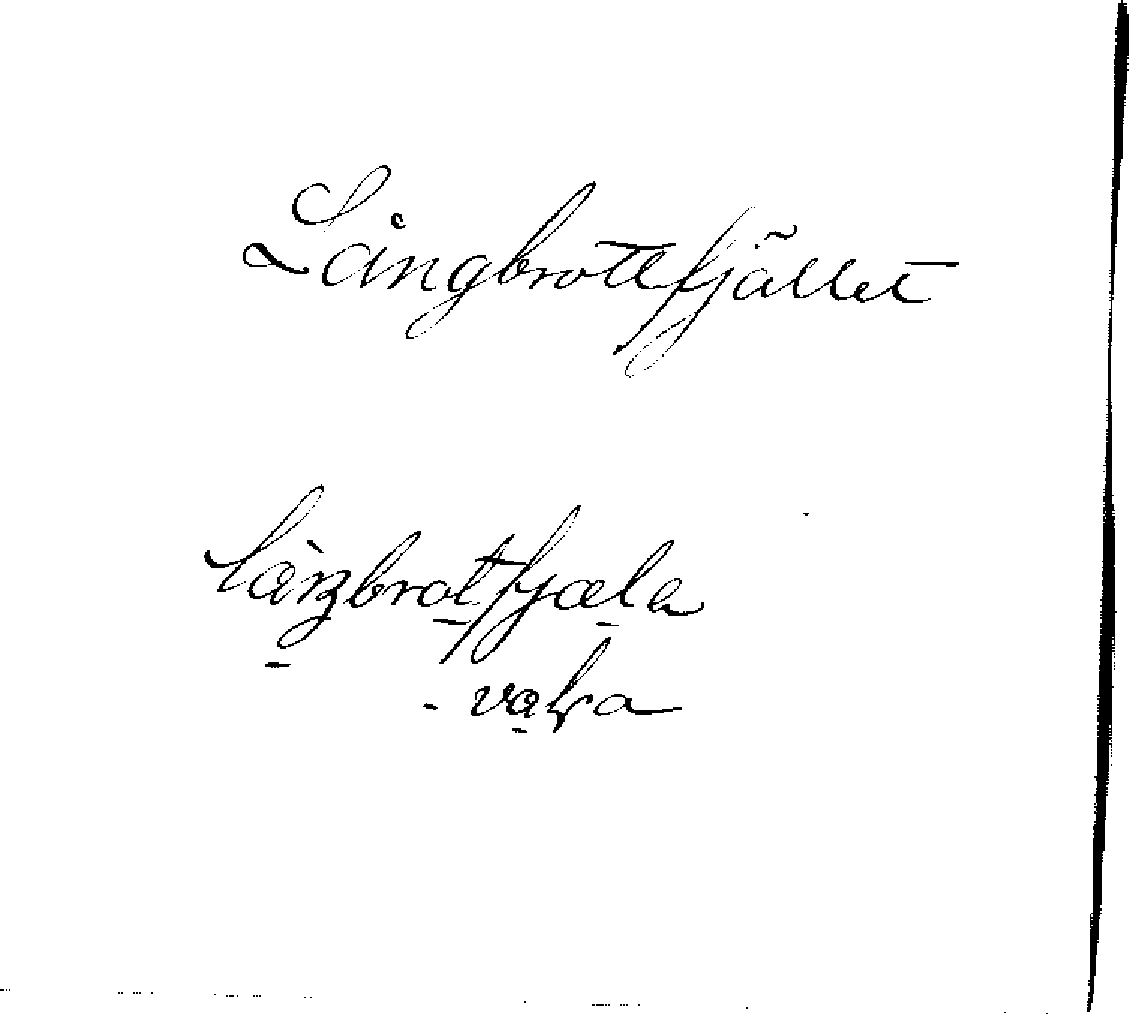 Långbrottfjället
làŋbrotfjæla
- vaʟa